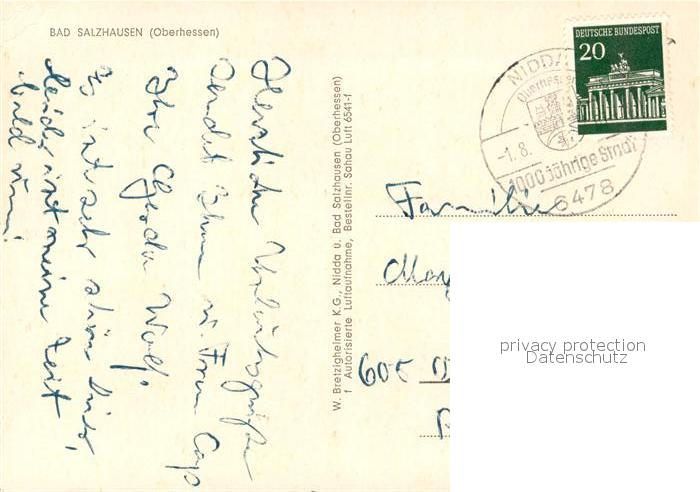 BAD SALZHAUSEN (Oberhessen)
Herzliche Urlaubsgrüße
sendet Ihnen u. Frau Cap
Ihre Gerda Wolf.
Es ist sehr schön hier,
leider ist meine Zeit
bald um!
W. Bretzigheimer K.G., Nidda u. Bad Salzhausen (Oberhessen)
f Autorisierte Luftaufnahme, Bestellnr. Schau Luft 6541-f
DEUTSCHE BUNDESPOST
20
NIDDA
Oberhessen
-1.8.
1000 jährige Stadt
6478
Familie
605
privacy protection
Datenschutz